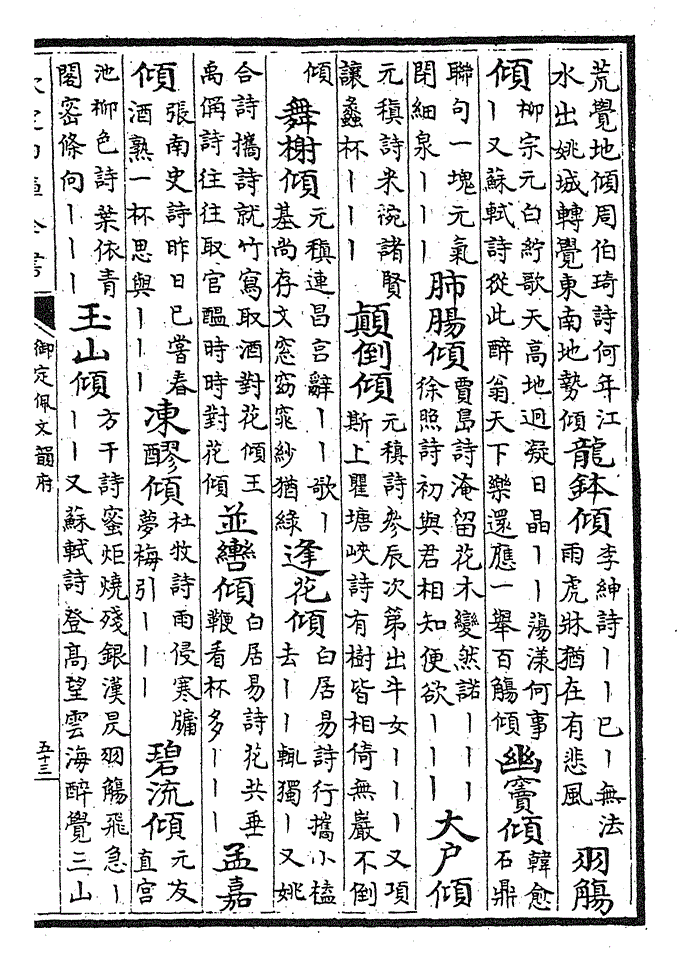 荒覺地傾周伯琦詩何年江
水出姚城轉覺東南地勢傾
龍鉢傾
李紳詩丨丨已丨無法
雨虎牀猶在有悲風
羽觴
傾
柳宗元白紵歌天高地迥凝日晶丨丨蕩漾何事
丨又蘇軾詩從此醉翁天下樂還應一舉百觴傾
幽竇傾
韓愈
石鼎
聯句一塊元氣
閉細泉丨丨丨
肺腸傾
賈島詩淹留花木變然諾丨丨丨
徐照詩初與君相知便欲丨丨丨
大户傾
元稹詩米椀諸賢
讓蠡杯丨丨丨
顛倒傾
元稹詩參辰次第出牛女丨丨丨又項
斯上瞿塘峽詩有樹皆相倚無巖不倒
傾
舞榭傾
元稹連昌宫辭丨丨歌丨
基尚存文窓窈窕紗猶綠
逢花傾
白居易詩行攜小榼
去丨丨輒獨丨又姚
合詩攜詩就竹寫取酒對花傾王
禹偁詩往往取官醖時時對花傾
並轡傾
白居易詩花共垂
鞭看杯多丨丨丨
孟嘉
傾
張南史詩昨日已嘗春
酒熟一杯思與丨丨丨
凍醪傾
杜牧詩雨侵寒牗
夢梅引丨丨丨
碧流傾
元友
直宫
池柳色詩葉依青
閣密條向丨丨丨
玉山傾
方干詩蜜炬燒殘銀漢昃羽觴飛急丨
丨丨又蘇軾詩登髙望雲海醉覺三山
御定佩文韻府
五十三